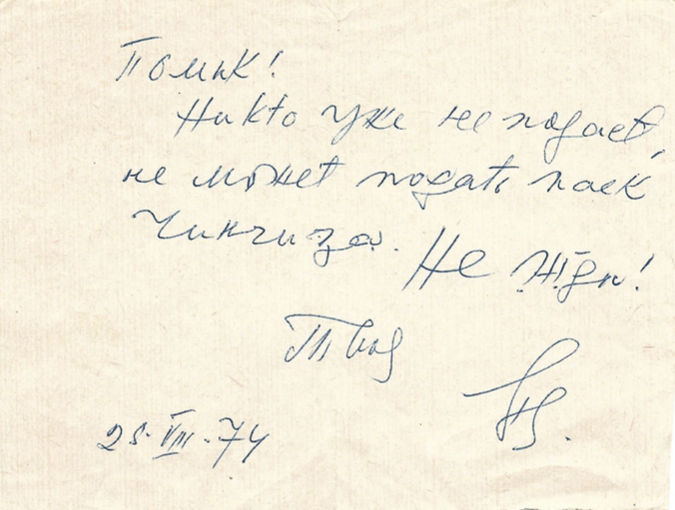 Томик!
Никто уже не подает,
не может подать паек
Чингиза. Не жди!
Твоя
25.VIII.74